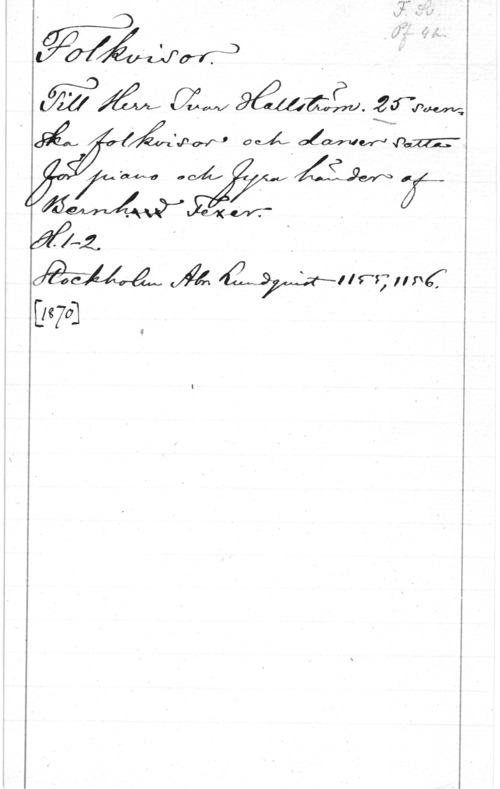 F. Sv.
Pf 4h.
Folkvisor.
Till Herr Ivar Hallström. 25 sven-
ska folkvisor och danser satta
för piano och fyra händer af
Bernhard Fexer.
H. 1-2.
Stockholm Abr. Lundquist 1155, 1156.
[1870]